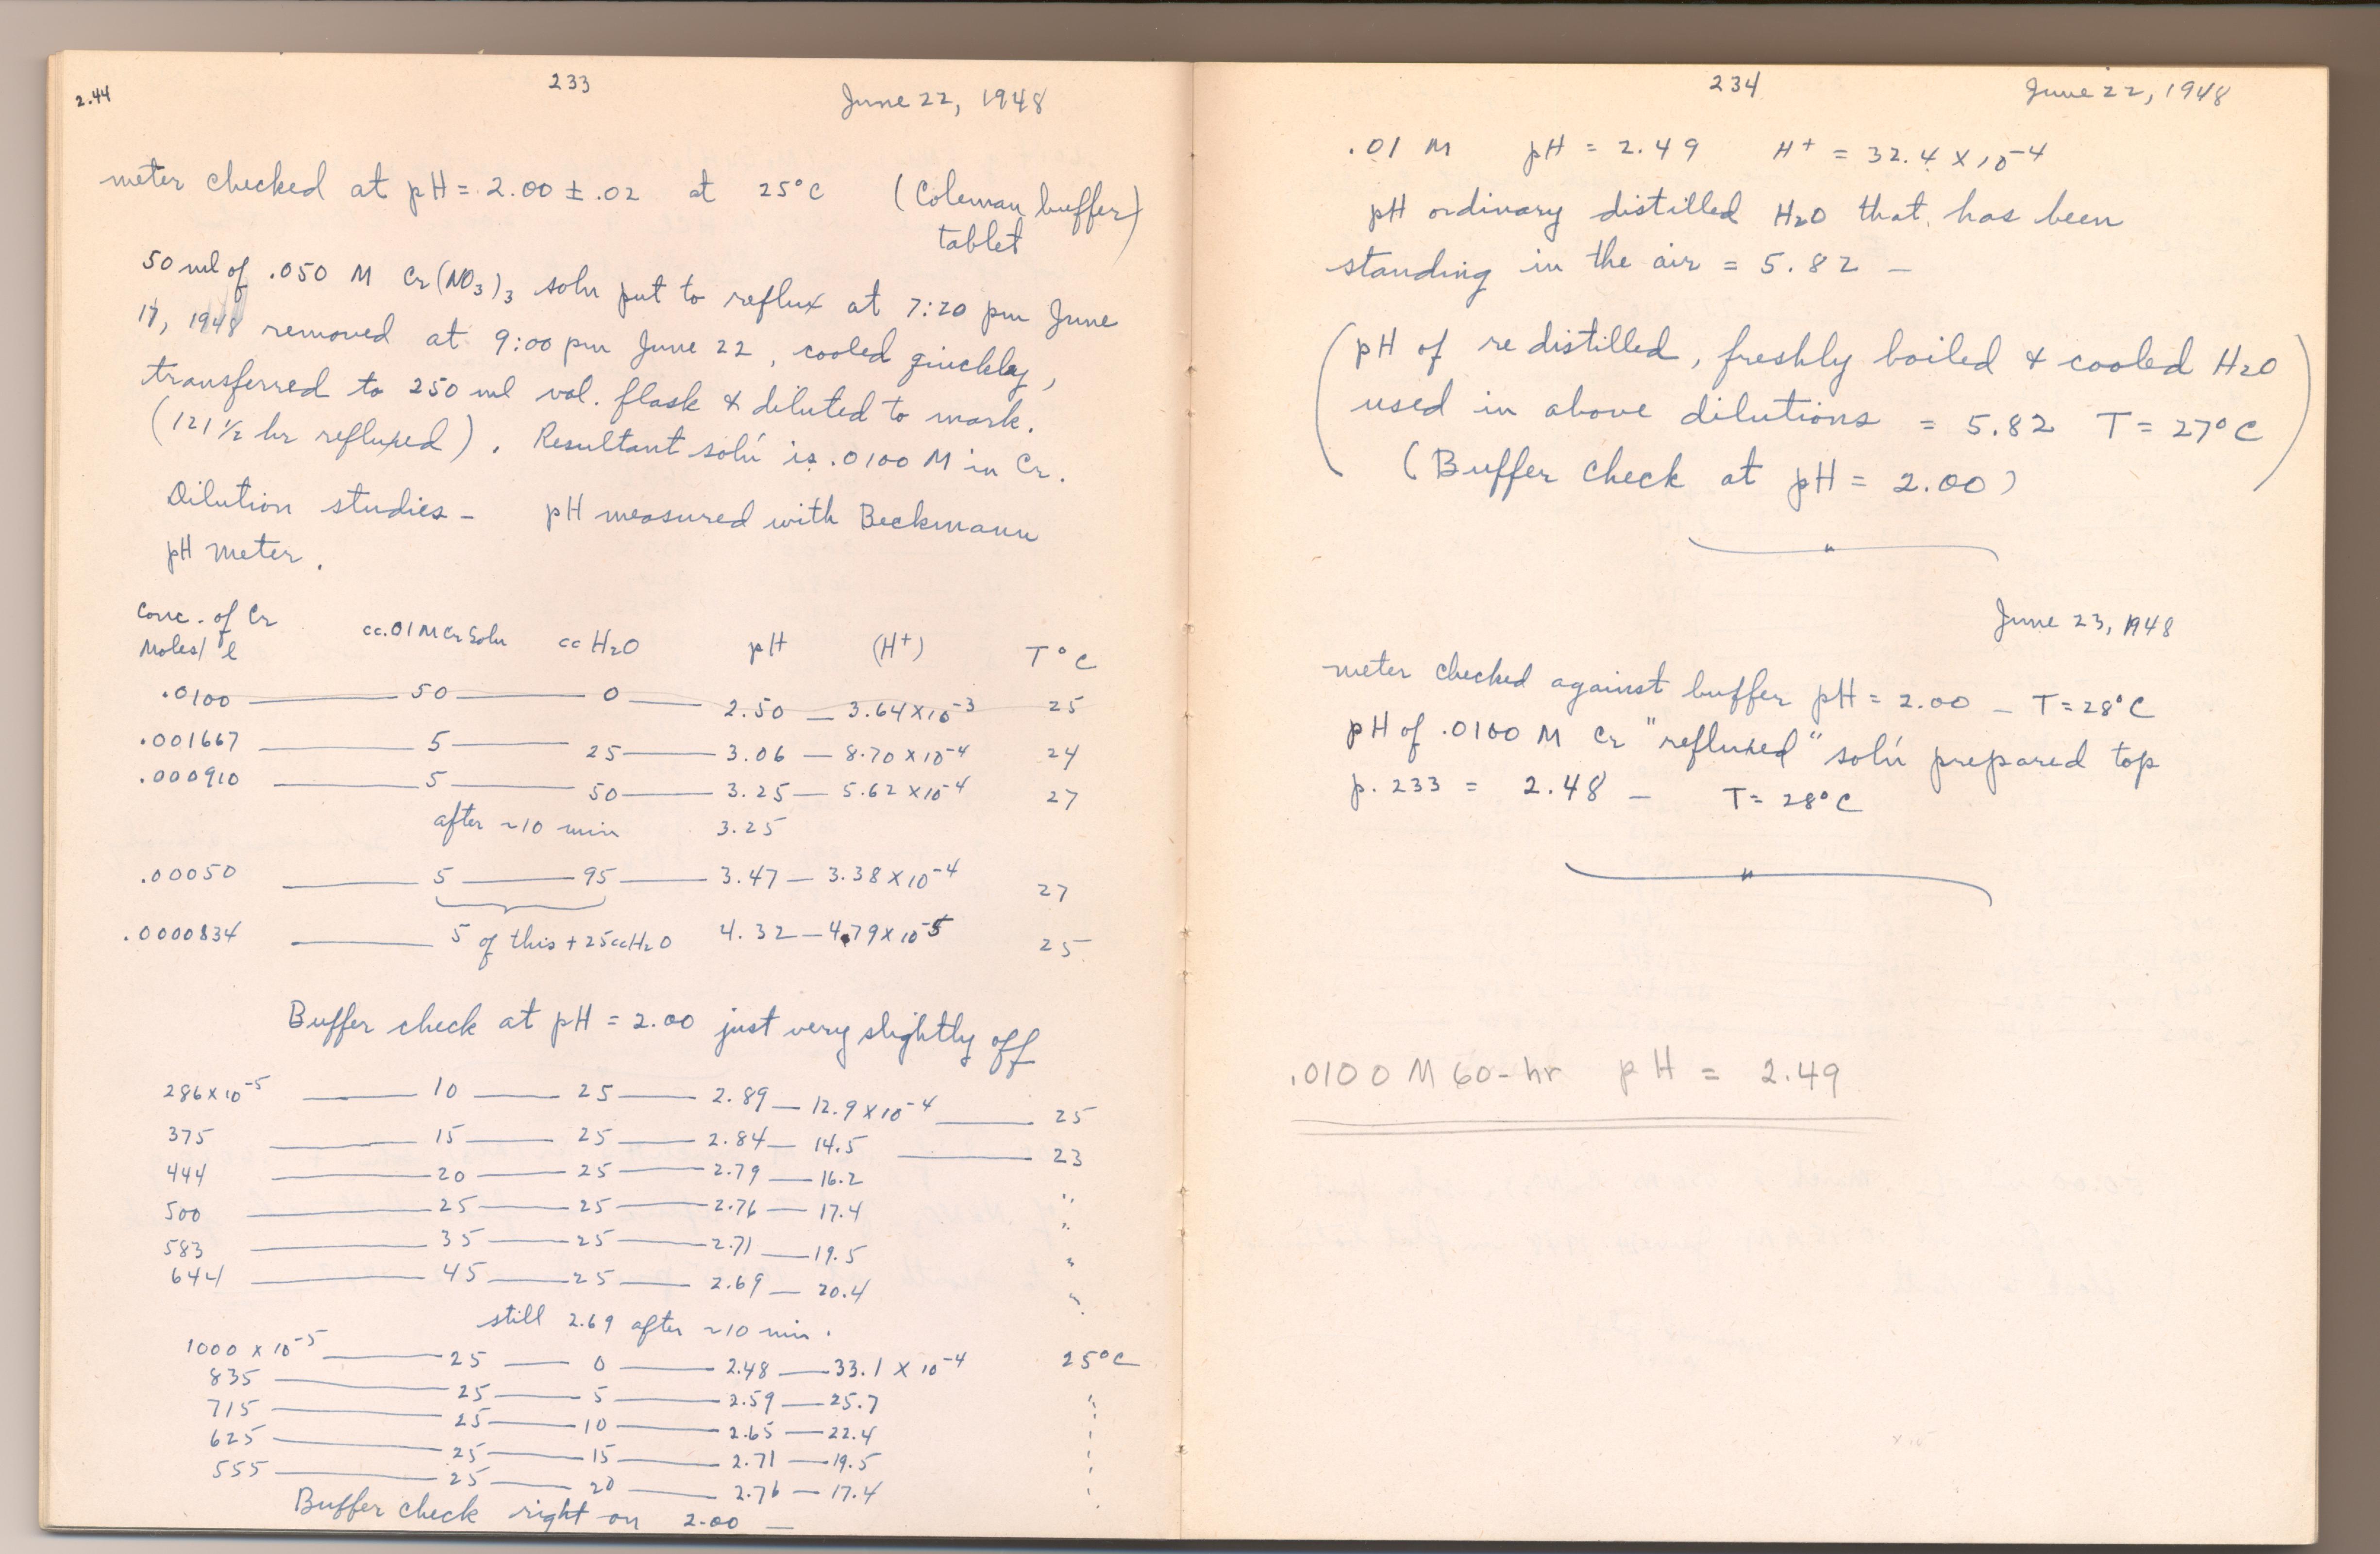 2.44
233
June 22, 1948
meter checked at pH = 2.00 ± .02 at 25°C (Coleman buffer)
tablet
50 ml of .050 M Cr(NO3)3 soln put to reflux at 7:20 pm June
17, 1948 removed at 9:00 pm June 22, cooled quickly,
transferred to 250 ml vol. flask & diluted to mark.
(121 1/2 hr refluxed). Resultant sol'n is .0100 M in Cr.
Dilution studies - pH measured with Beckmann
pH meter.
Conc. of Cr
Moles/l cc .01 M Cr Soln cc H2O pH (H+) T°C
.0100 — 50 — 0 — 2.50 — 3.64 x 10-3 25
.001667 — 5 — 25 — 3.06 — 8.70 x 10-4 24
.000910 — 5 — 50 — 3.25 — 5.62 x 10-4 27
after ~10 min 3.25
.00050 — 5 — 95 — 3.47 — 3.38 x 10-4 27
.0000834 — 5 of this + 25cc H2O 4.32 — 4.79 x 10-5 25
Buffer check at pH = 2.00 just very slightly off
286 x 10-5 — 10 — 25 — 2.89 — 12.9 x 10-4 — 25
375 — 15 — 25 — 2.84 — 14.5 — 23
444 — 20 — 25 — 2.79 — 16.2 "
500 — 25 — 25 — 2.76 — 17.4 "
583 — 35 — 25 — 2.71 — 19.5 "
644 — 45 — 25 — 2.69 — 20.4 "
still 2.69 after ~10 min.
1000 x 10-5 — 25 — 0 — 2.48 — 33.1 x 10-4 25°C
835 — 25 — 5 — 2.59 — 25.7 "
715 — 25 — 10 — 2.65 — 22.4
625 — 25 — 15 — 2.71 — 19.5
555 — 25 — 20 — 2.76 — 17.4
Buffer check right on 2.00 —
234
June 22, 1948
.01 M pH = 2.49 H+ = 32.4 x 10-4
pH ordinary distilled H2O that has been
standing in the air = 5.82 —
(pH of redistilled, freshly boiled & cooled H2O
used in above dilutions = 5.82 T = 27°C)
(Buffer check at pH = 2.00)
June 23, 1948
meter checked against buffer pH = 2.00 — T = 28°C
pH of .0100 M Cr "refluxed" sol'n prepared top
p. 233 = 2.48 — T = 28°C
.0100 M 60-hr pH = 2.49